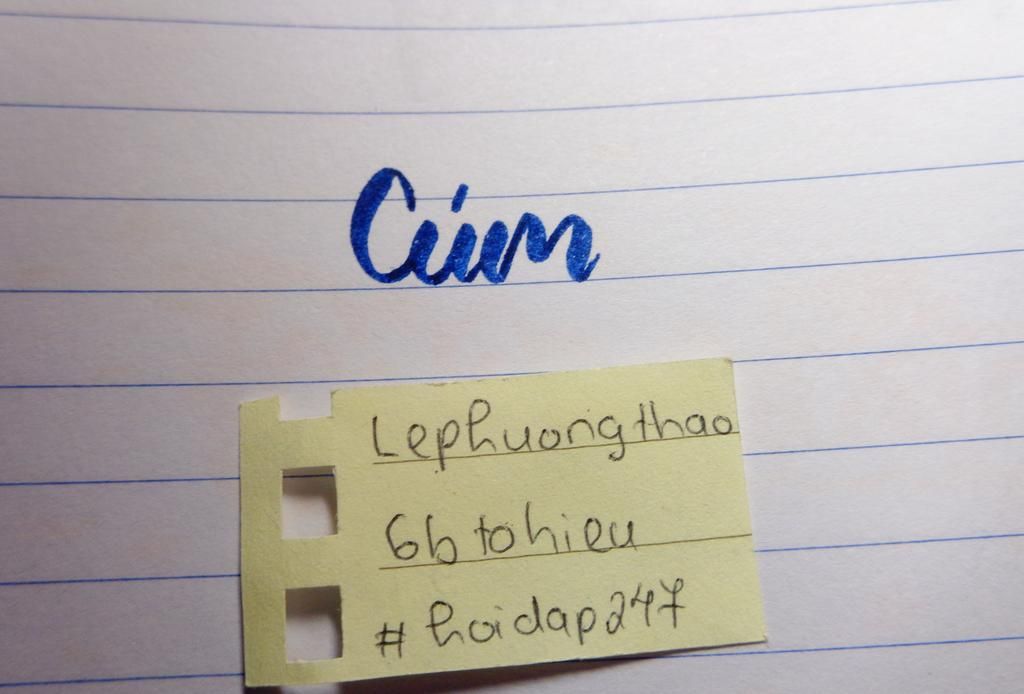 Cúm
Lephuongthao
6b tohieu
# hoidap247